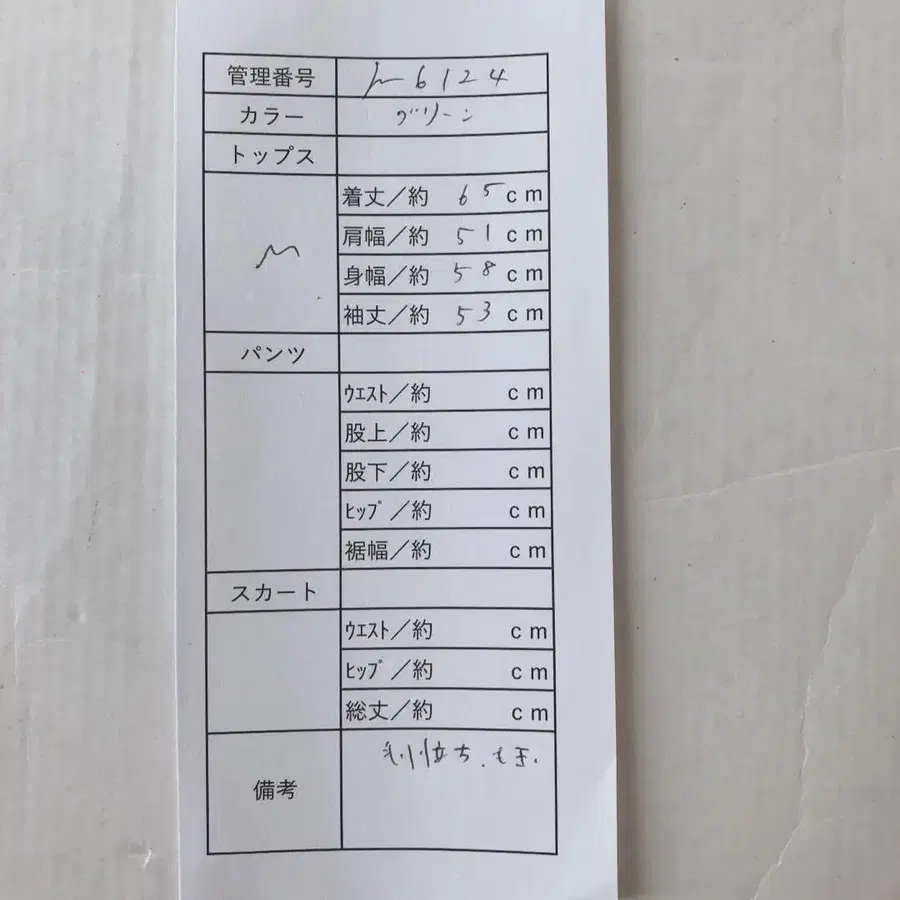 管理番号 h6124
カラー グリーン
トップス
M
着丈／約 65cm
肩幅／約 51cm
身幅／約 58cm
袖丈／約 53cm
パンツ
ウエスト／約 cm
股上／約 cm
股下／約 cm
ヒップ／約 cm
裾幅／約 cm
スカート
ウエスト／約 cm
ヒップ／約 cm
総丈／約 cm
備考 毛羽立ち、毛玉、